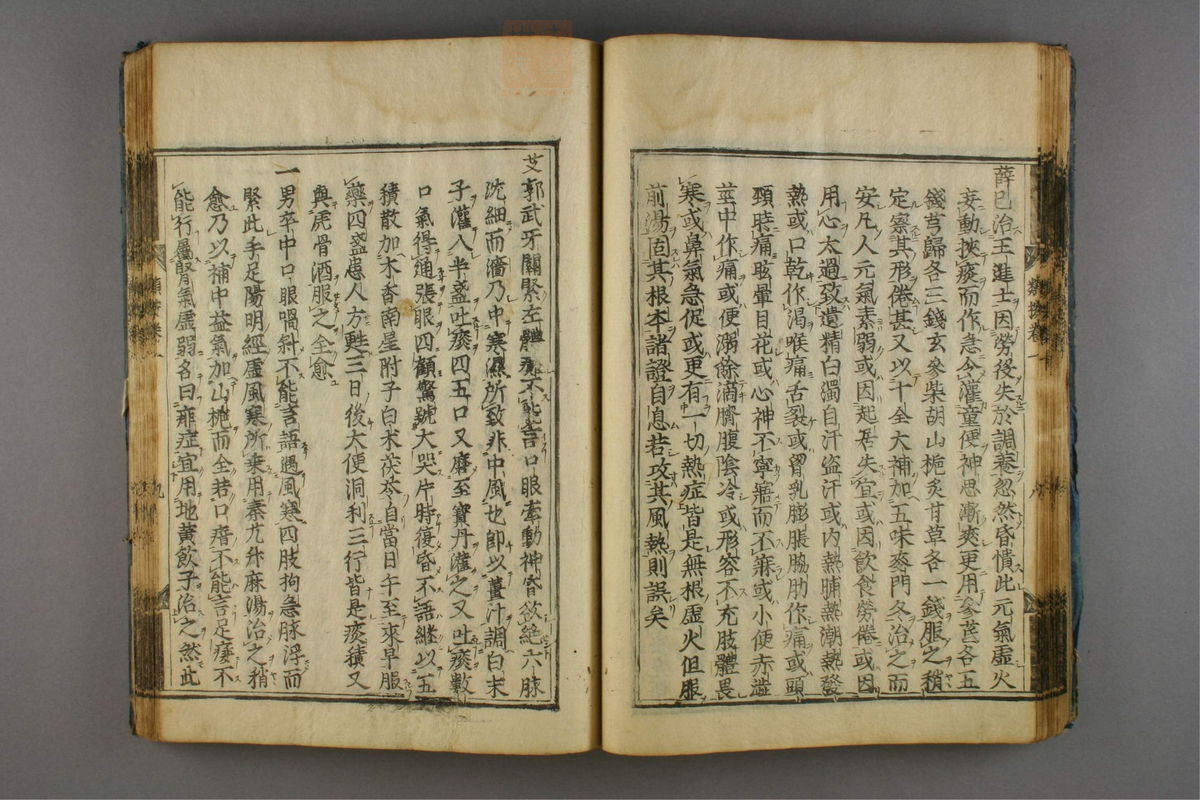 薛巳治王進士因勞後失於調養忽然昏憒此元氣虛火
妄動挾痰而作急令灌童便神思漸爽更用參茋各五
錢芎歸各三錢玄參柴胡山梔炙甘草各一錢服之稍
定察其形倦甚又以十全大補加五味麥門冬治之而
安凡人元氣素弱或因起居失宜或因飲食勞倦或因
用心太過致遺精白濁自汗盜汗或內熱晡熱潮熱發
熱或口乾作渴喉痛舌裂或胷乳膨脹脇肋作痛或頭
頸時痛眩暈目花或心神不寧寤而不寐或小便赤澁
莖中作痛或便溺餘滴臍腹陰冷或形容不充肢體畏
寒或鼻氣急促或更有一切熱症皆是無根虛火但服
前湯固其根本諸證自息若攻其風熱則誤矣
艾郭武牙關緊左體不能言口眼牽動神昏欲絕六脉
沈細而濇乃中寒濕所致非中風也卽以薑汁調白末
子灌八半盞吐痰四五口又磨至寶丹灌之又吐痰數
口氣得通張眼四顧驚號大哭片時復昏不語繼以五
積散加木香南星附子白术茯苓自當日午至來早服
藥四盞患人方甦三日後大便洞利三行皆是痰積又
與虎骨酒服之全愈
一男卒中口眼喎斜不能言語遇風寒四肢拘急脉浮而
緊此手足陽明經虛風寒所乗用秦艽升麻湯治之稍
愈乃以補中益氣加山梔而全若口瘖不能言足痿不
能行屬腎氣虛弱名曰痱症宜用地黃飲子治之然此
類按卷一
八
九